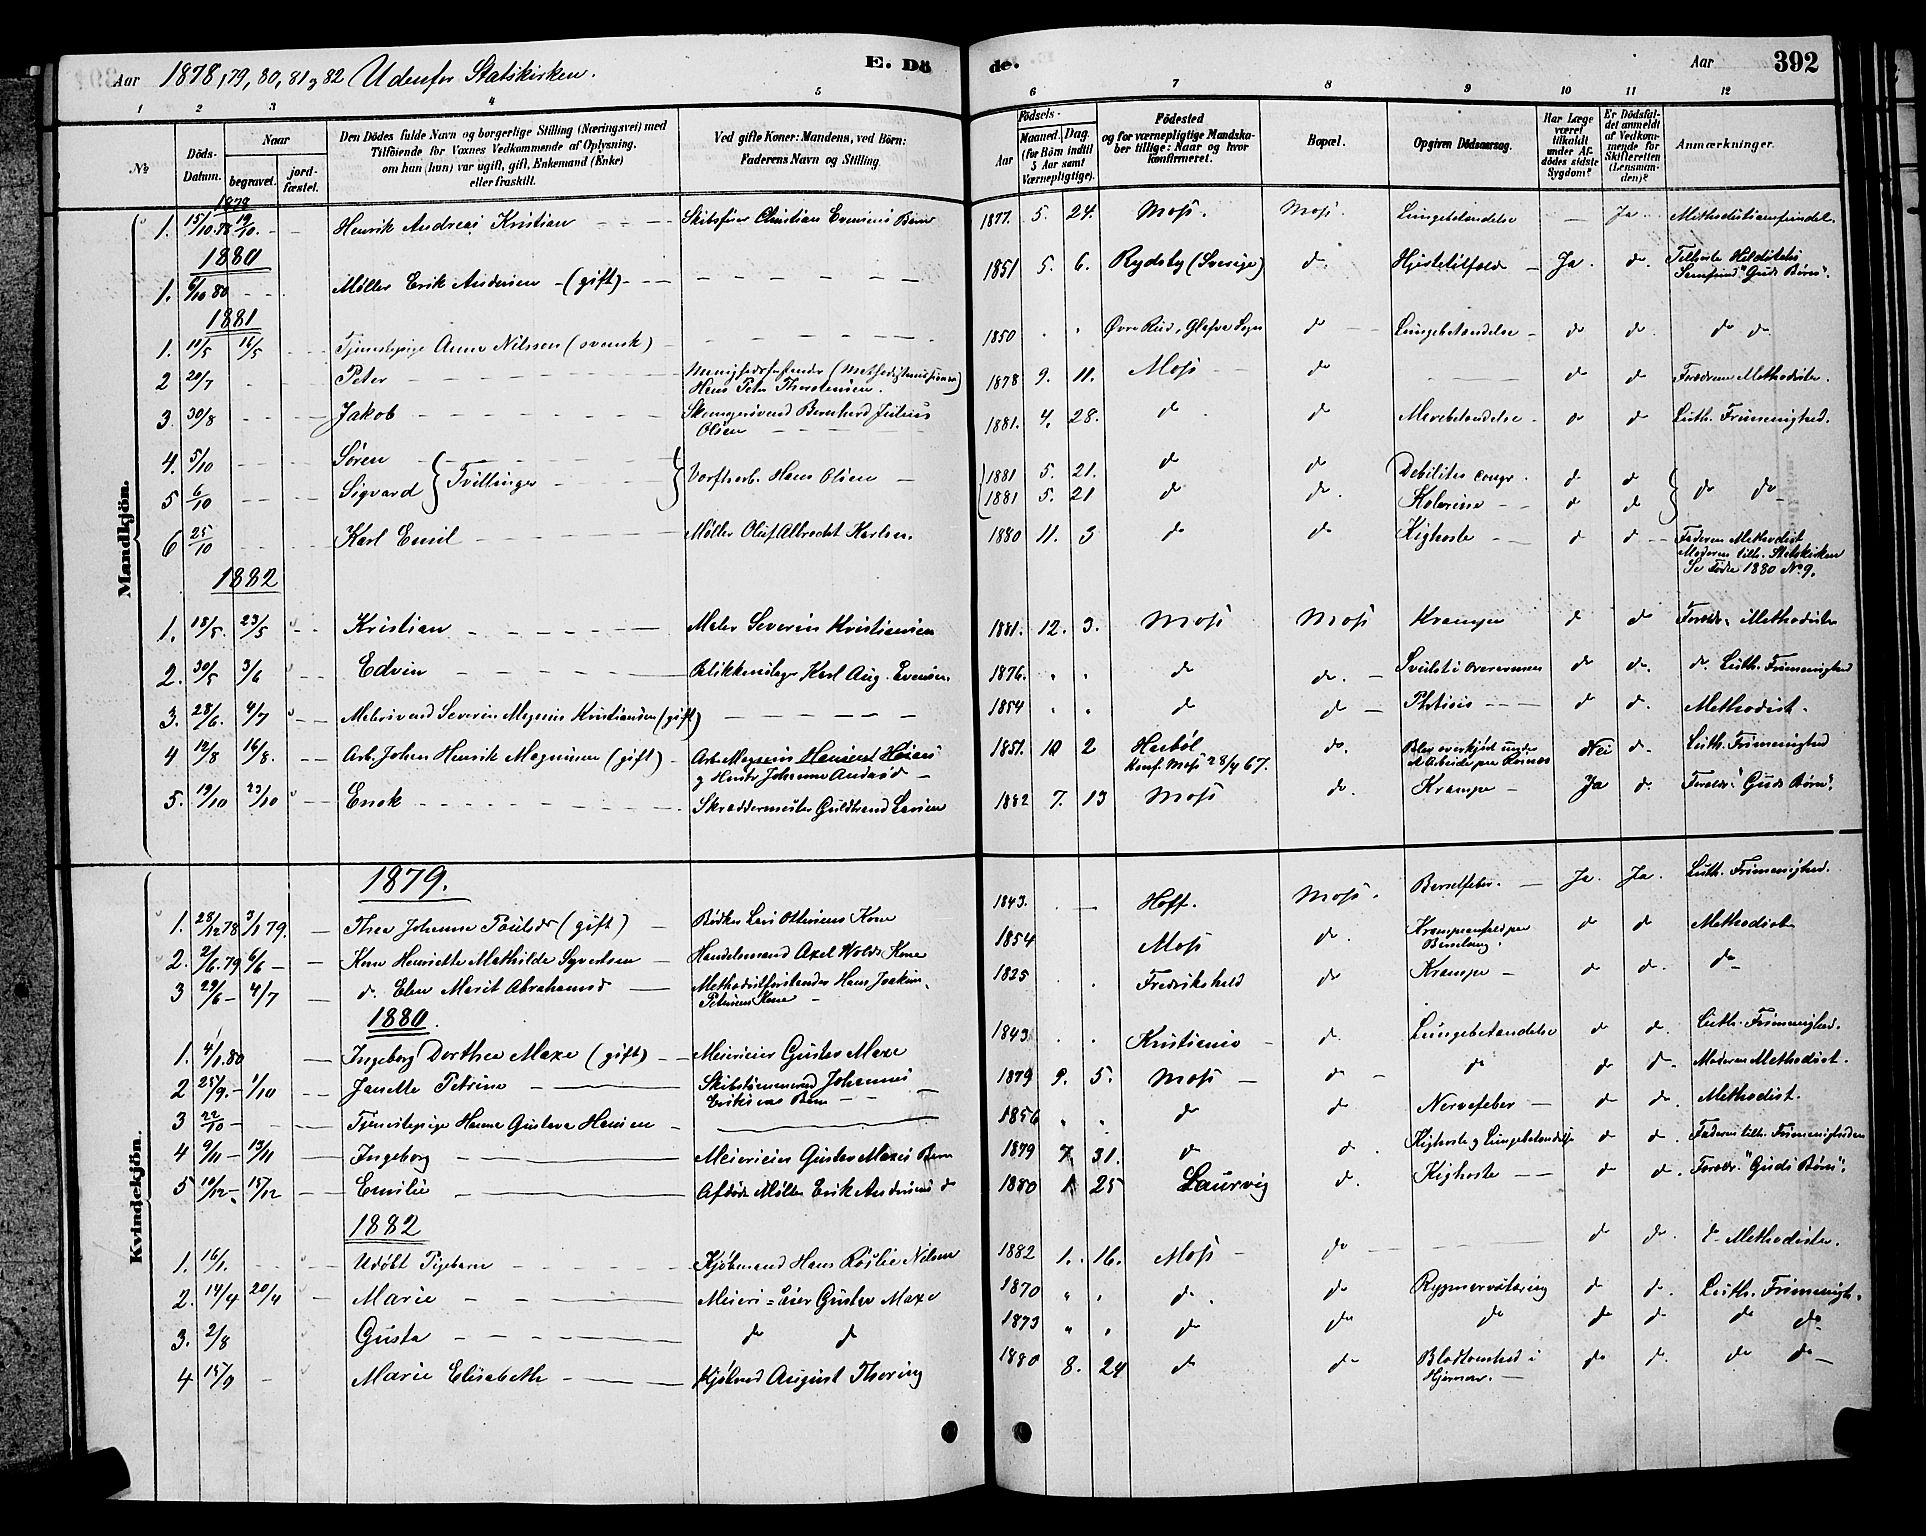 Aar 1878, 79, 80, 81 & 82 Udenfor Statskirken.
E. Dö
de.
Aar 392
1 2 3 4 5 6 7 8 9 10 11 12
No.
Döds-Datum.
Naar
begravet.
jord-fæstet.
Den Dödes fulde Navn og borgerlige Stilling (Næringsvei) med
Tilföiende for Voxnes Vedkommende af Oplysning,
om han (hun) var ugift, gift, Enkemand (Enke)
eller fraskilt.
Ved gifte Koner: Mandens, ved Börn:
Faderens Navn og Stilling.
Födsels-
Aar
Maaned. Dag.
(for Börn indtil
5 Aar samt
Værnepligtige).
Födested
og for værnepligtige Mandska-
ber tillige: Naar og hvor
konfirmeret.
Bopæl.
Opgiven Dödsaarsag.
Har Læge
været
tilkaldt
under Af-
dödes sidste
Sygdom?
Er Dödsfal-
det anmeldt
af Vedkom-
mende for
Skifteretten
(Lensman-
den)?
Anmærkninger.
Mandkjön.
1878
1. 15/10.78 19/10. Henrik Andreas Kristian Skibsfører Christian Evensens Barn 1877. 5. 24. Moss. Moss. Lungebetændelse Ja. Methodistsamfundet.
1880
1. 6/10 80 Møller Erik Andersen (gift) 1851 5. 6. Rydsby (Sverige) do Hjertetilfælde Ja. do. Tilhørte
Samfund "Guds Børn".
1881
1. 11/5 16/5 Tjenestepige Anna Nilssen (svensk) 1850 Øvre Rud, Glefve Sogn do Lungebetændelse do do do do
2 20/7 Peter Menighedsforstander (Methodistmissionær)
Hans Peter Thorstensen 1878 9. 11. Moss do do do Forældrene Methodister.
3. 30/8 Jakob Skomagersvend Bernhard Julius
Olsen 1881. 4. 28. do do Mavebetændelse do do Luth. Frimenighed.
4. 5/10 Søren } Tvillinger Værftsarb. Hans Olsen 1881 5. 21. do do Debilitas congr. do do } do do
5 6/10 Sigvard 1881 5. 21 do do. Kolerine do do
6 25/10 Karl Emil Møller Oluf Albrecht Karlsen. 1880 11. 3 do do Kighoste do do Faderen Methodist
Moderen tilh. Statskirken
Se Fødte 1880 No 9.
1882
1. 18/5. 23/5 Kristian Maler Severin Kristiansen 1881. 12. 3. Moss Moss Krampe do do Forældr. Methodister
2. 30/5 3/6 Edvin Blikkenslager Karl Aug. Evensen. 1876. do do. Svulst i Overarmen do do. do. Luth. Frimenighed
3. 28/6. 4/7 Malersvend Severin Magnus Kristiansen (gift) 1854 do do Phtisis do do. Methodist.
4 12/8 16/8. Arb. Johan Henrik Magnusen (gift) Arb. Magnus Hansen
& Hustr. Johanne Andersd 1851. 10 2 Haabøl
Konf. Moss 28/4 67. do. Blev overkjørt under
Arbeide paa Nei do. Luth. Frimenighed
5. 19/10 23/10 Enok Skræddermester Guldbrand Larsen 1882 7. 13 Moss do. Krampe Ja do. Forældr. "Guds Børn".
Kvindekjön.
1879.
1. 28/12 78 3/1 79. Thea Johanne Paulsdr (gift) Bødker Lars Ottersens Kone 1843. Hoff. Moss. Barselfeber. Ja. Ja. Luth. Frimenighed.
2. 2/6.79 6/6 Kone Henriette Mathilde Syvertsen Handelsmand Axel Wolds Kone 1854 Moss do. Krampeanfald paa do do Methodist
3 29/6 4/7 do. Elen Marit Abrahamsd Methodistforstander Hans Joakim
Petersens Kone 1825 Fredrikshald do Krampe do do. do
1880.
1. 4/1.80 Ingeborg Dorthea Maxe (gift) Meierieier Gustav Maxe 1843. Kristiania do. Lungebetændelse do do. Luth. Frimenighed.
2 25/9. 1/10 Janette Petrine Skibstømmermand Johannes
Eriksens Barn 1879 9. 5. Moss do do do do. Moderen Methodist.
3 22/10 Tjenestepige Hanna Gustava Hansen 1856 do do Nervefeber do do. Methodist.
4 9/11 13/11 Ingeborg Meierieier Gustav Maxes Barn 1879 7. 31. do do. Kighoste & Lungebetændelse do do. Faderen tilh. Frimenigheden
5 10/12 15/12 Emilie Afdøde Møller Erik Andersens do 1880 1 25 Laurvig do. Kighoste do do. Forældr. "Guds Børn".
1882
1. 16/1. Udøbt Pigebarn Kjøbmand Hans Røslie Nilsen 1882 1. 16. Moss do do do. do Methodister.
2. 14/4 20/4 Marie Meieri-Eier Gustav Maxe 1870 do. do Rygmarvstæring do do. Luth. Frimenigh.
3. 2/8 Gusta do do 1873 do do do do do. do do
4 15/9 Marie Elisabeth August Thoring 1880 8. 24 do do Blodtomhed i
Hjernen. do do. do do